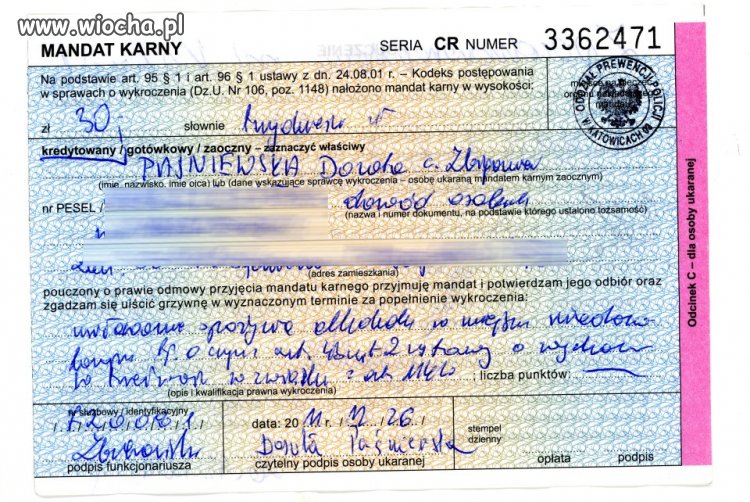 www.wiocha.pl
MANDAT KARNY SERIA CR NUMER 3362471
Na podstawie art. 95 § 1 i art. 96 § 1 ustawy z dn. 24.08.01 r. – Kodeks postępowania
w sprawach o wykroczenia (Dz.U. Nr 106, poz. 1148) nałożono mandat karny w wysokości:
ODDZIAŁ PREWENCJI POLICJI W KATOWICACH
zł 30,- słownie
kredytowany / gotówkowy / zaoczny – zaznaczyć właściwy
PAŚNIEWSKA Dorota c. Zbigniewa
(imię, nazwisko, imię ojca) lub (dane wskazujące sprawcę wykroczenia – osobę ukaraną mandatem karnym zaocznym)
nr PESEL / dowód osobisty
(nazwa i numer dokumentu, na podstawie którego ustalono tożsamość)
(adres zamieszkania)
pouczony o prawie odmowy przyjęcia mandatu karnego przyjmuję mandat i potwierdzam jego odbiór oraz
zgadzam się uiścić grzywnę w wyznaczonym terminie za popełnienie wykroczenia:
usiłowanie spożycia alkoholu w miejscu
tj. o czyn z art. ust 2 ustawy o wychow
w trzeźwości w związku z art.
; liczba punktów:
(opis i kwalifikacja prawna wykroczenia)
nr służbowy / identyfikacyjny
data: 2011.12.26
stempel
dzienny
Dorota Paśniewska
podpis funkcjonariusza czytelny podpis osoby ukaranej opłata podpis
Odcinek C – dla osoby ukaranej